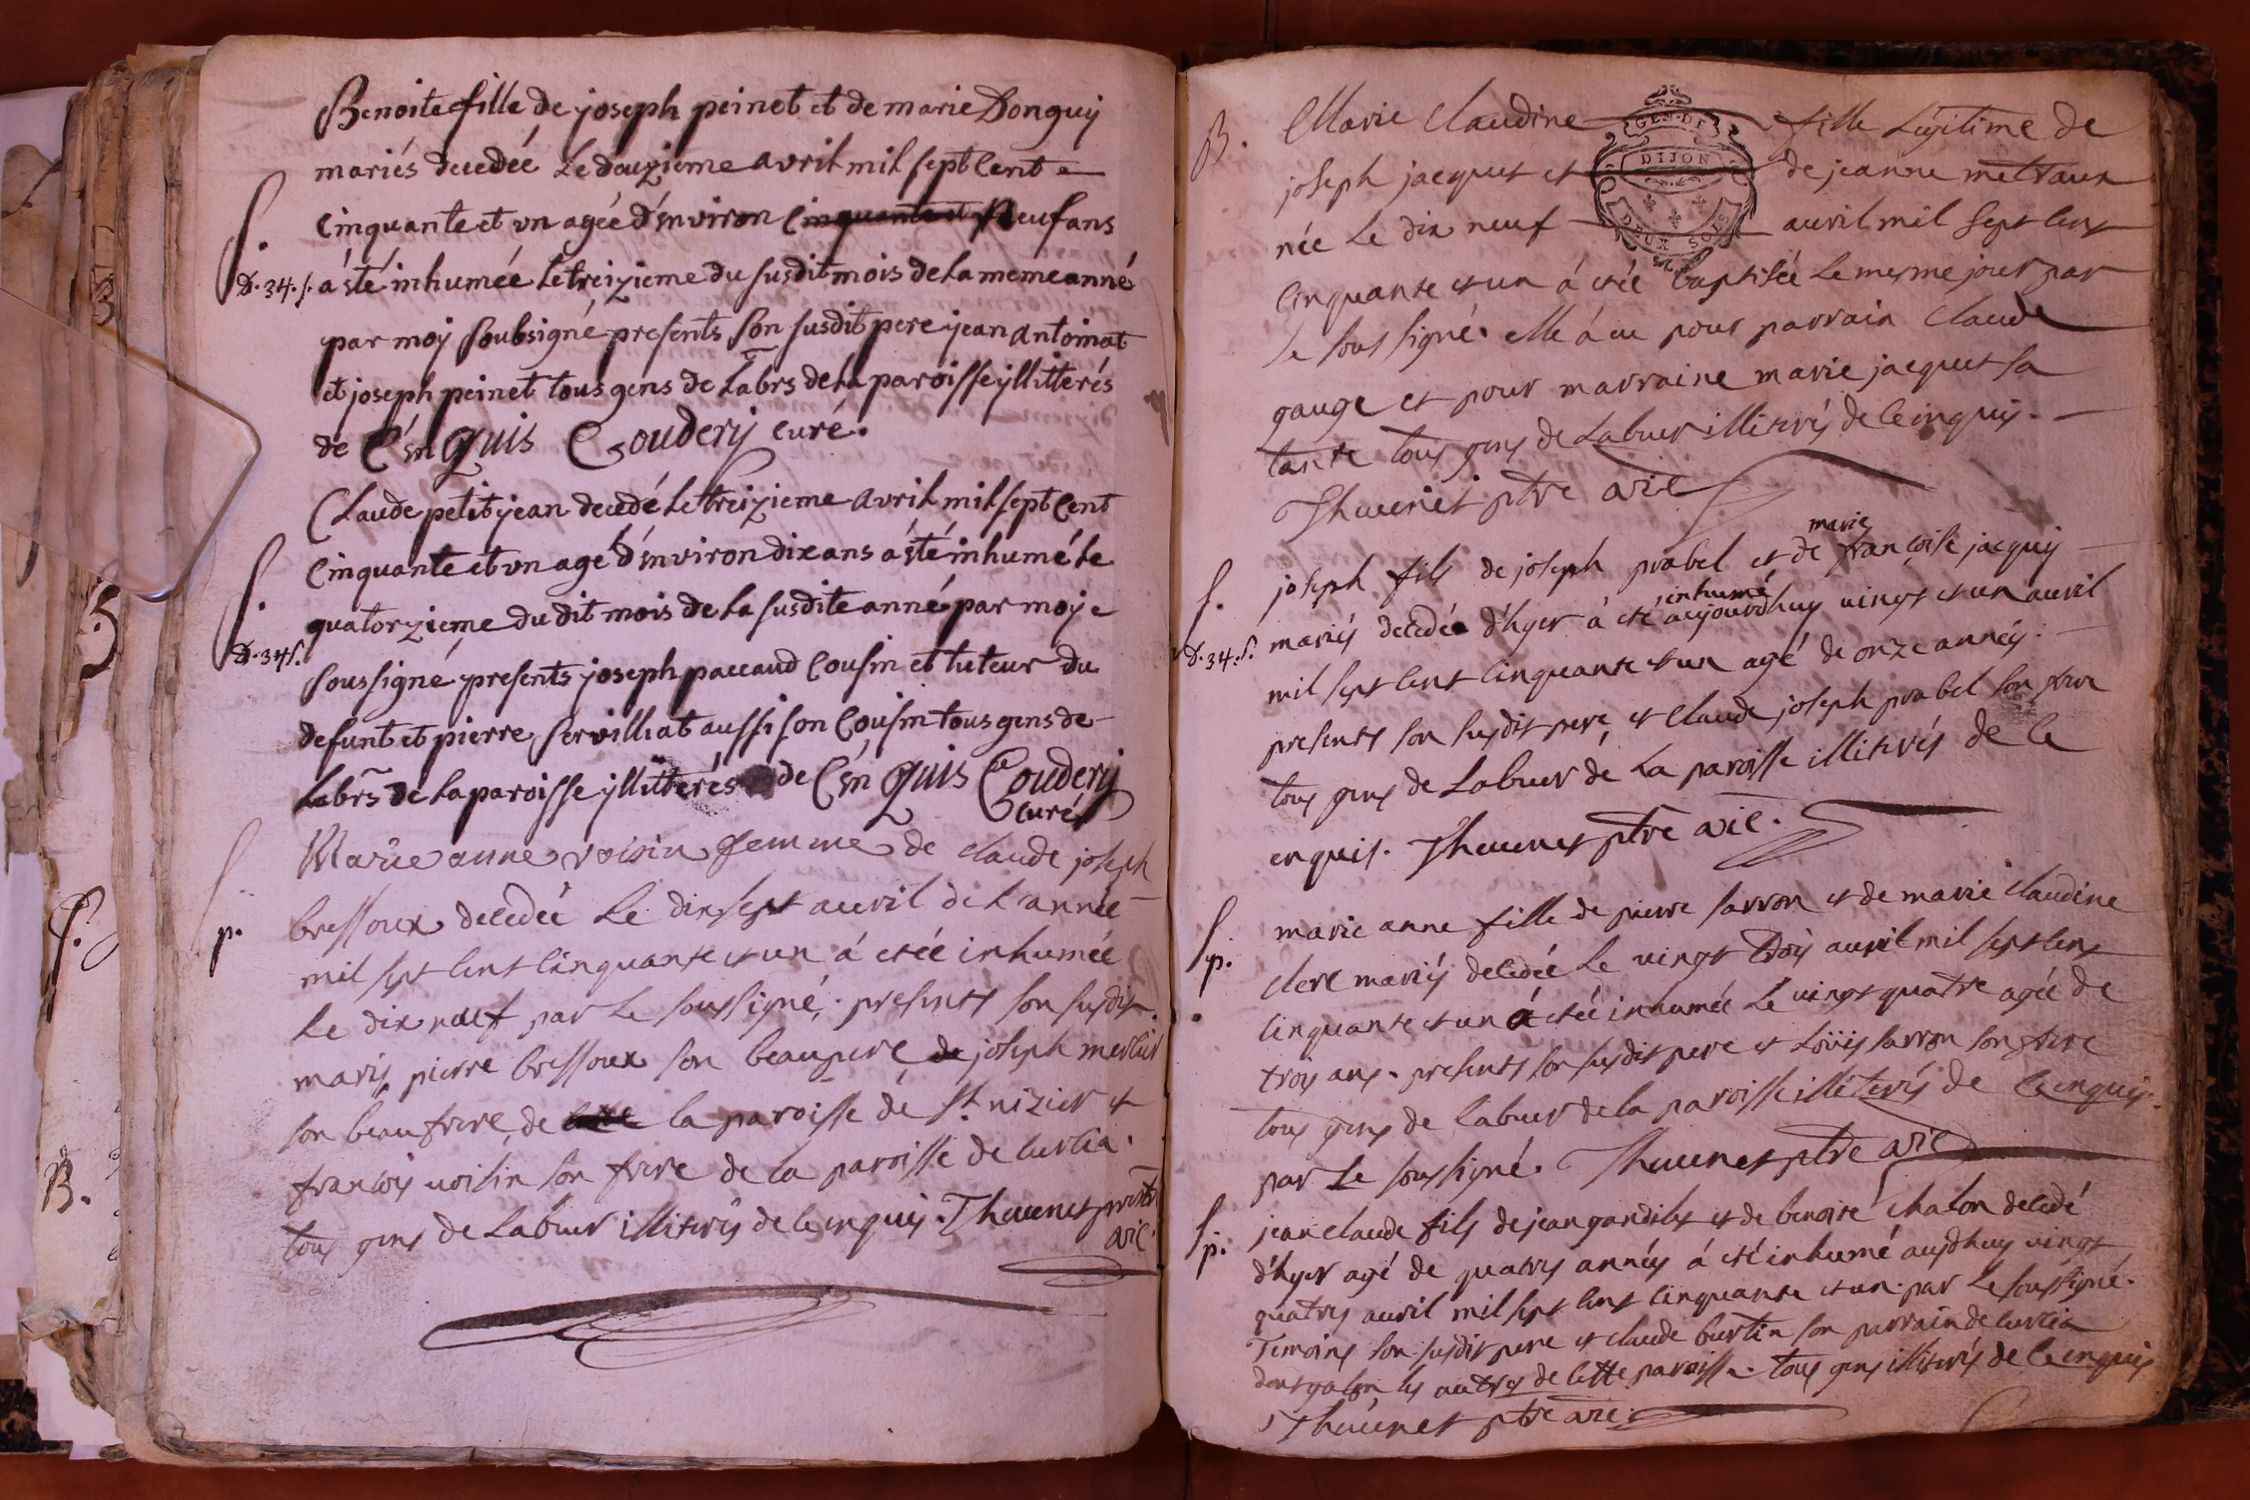 Benoite fille de joseph peinet et de marie Donguy
mariés decedéé Le douzieme avril mil sept Cent
S.
Cinquante et vn agéé d'énviron Cinquante et Neuf ans
D. 34. s. á été inhumée Le treizieme du susdit mois de La meme anné
par moy soubsigné presents son susdit pere jean antoinat
et joseph peinet tous gens de Labrs de La paroisse yllitterés
de C'én quis Coudery curé.
Claude petitjean decedé Le treizieme avril mil sept Cent
S.
Cinquante et vn agé d'énviron dix ans á été inhumé Le
quatorzieme du dit mois de La susdite anné par moy
D. 34 s.
soussigné presents joseph paccaud Cousin et tuteur du
defunt et pierre servilliat aussi son Cousin tous gens de
Labrs de La paroisse yllitterés de C'én quis Coudery
curé
S.
p.
Marie anne voisin femme de claude joseph
bressoux decedée Le dix sept auril de L'année
mil sept cent cinquante et un á etée inhumée
Le dix neuf par Le soussigné. presents son susdit
marÿ pierre bressoux son beaupere de joseph mercier
son beaufrere, de la paroisse de St. nizier et
francois voisin son frere de la paroisse de curtia.
tous gens de Labeur illiterés de cenquis. Thevenet
vic.
B.
Marie Claudine fille Légitime de
GEN. DE
DIJON
DEUX SOLS
joseph jacquet et de jeanne metraux
née Le dix neuf auril mil sept cent
cinquante et un á etée baptisée Le mesme jour par
Le soussigné. elle á eu pour parrain Claude
gauge et pour marraine marie jacquet sa
tante tous gens de Labeur illiterés de cenquis.
Thevenet ptre vic.
S.
joseph fils de joseph prabel et de françoise jacquy
marie
D. 34. s.
mariés decedé d'hyer á eté aujourdhuy vingt et un auril
inhumé
mil sept cent cinquante et un agé de onze années.
presents son susdit pere, et Claude joseph prabel son frere
tous gens de Labeur de La paroisse illiterés de ce
enquis. Thevenet ptre vic.
S.
p.
marie anne fille de pierre sarron et de marie Claudine
clerc mariés decedée Le vingt trois auril mil sept cent
cinquante et un á etée inhumée Le vingt quatre agée de
trois ans. presents son susdit pere et Loüis sarron son frere
tous gens de Labeur de la paroisse illiterés de cenquis.
par Le soussigné. Thevenet ptre vic.
S.
p.
jean claude fils de jean gandilet et de benoite chalon decedé
d'hyer agé de quatre années á eté inhumé aujdhuy vingt
quatre auril mil sept cent cinquante et un par Le soussigné.
Temoins son susdit pere et claude burtin son parrain de curtia
les autres de cette paroisse. tous gens illiterés de cenquis
Thevenet ptre vic.